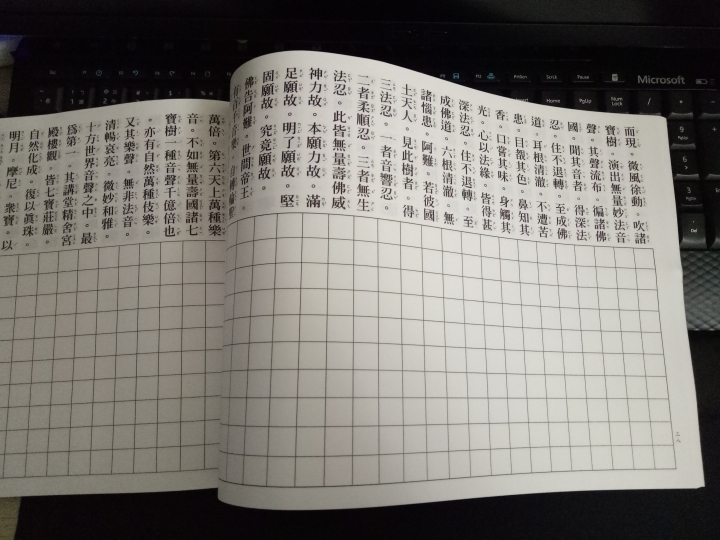 而現。微風徐動。吹諸
寶樹。演出無量妙法音
聲。其聲流布。徧諸佛
國。聞其音者。得深法
忍。住不退轉。至成佛
道。耳根清徹。不遭苦
患。目覩其色。鼻知其
香。口嘗其味。身觸其
光。心以法緣。皆得甚
深法忍。住不退轉。至
成佛道。六根清徹。無
諸惱患。阿難。若彼國
土天人。見此樹者。得
三法忍。一者音響忍。
二者柔順忍。三者無生
法忍。此皆無量壽佛威
神力故。本願力故。滿
足願故。明了願故。堅
固願故。究竟願故。
佛告阿難。世間帝王。
萬倍。第六天上萬種樂
音。不如無量壽國諸七
寶樹一種音聲千億倍也
。亦有自然萬種伎樂。
又其樂聲。無非法音。
清暢哀亮。微妙和雅。
十方世界音聲之中。最
為第一。其講堂精舍宮
殿樓觀。皆七寶莊嚴。
自然化成。復以眞珠。
明月。摩尼。衆寶。以
Microsoft
PrtScn
Home
End
PgUp
PgDn
Num
Lock
Del